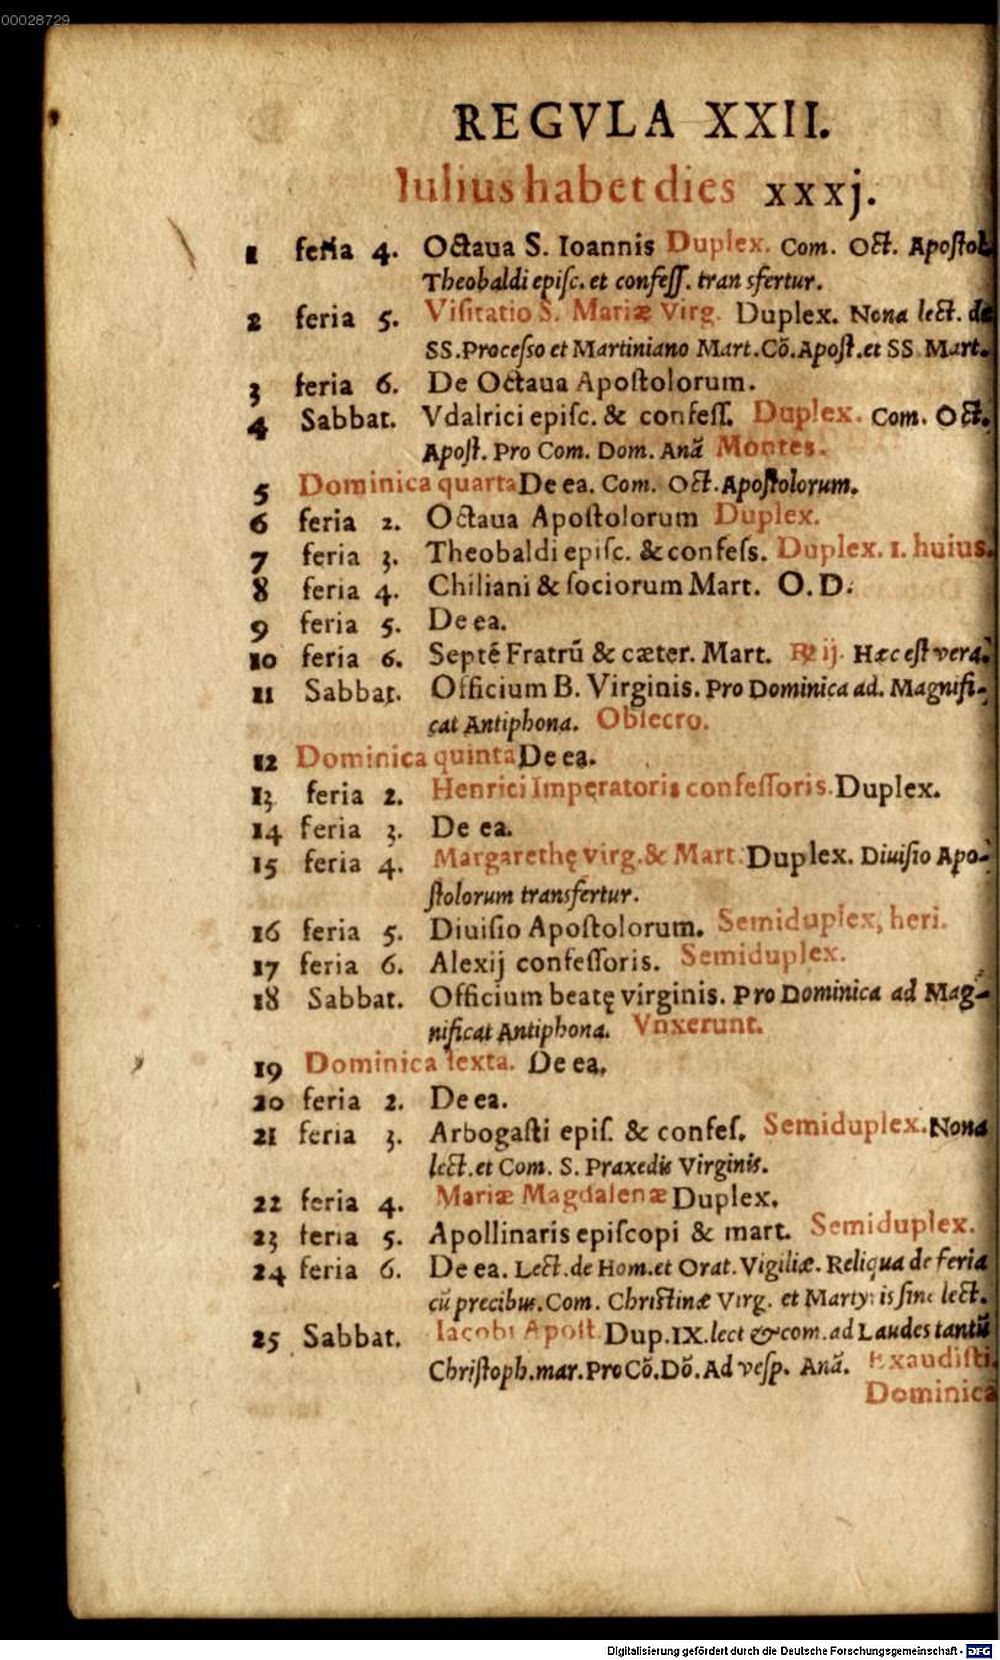 00028729
REGVLA XXII.
Iulius habet dies xxxj.
1 feria 4. Octaua S. Ioannis Duplex. Com. Oct. Apostol.
Theobaldi episc. et confess. transfertur.
2 feria 5. Visitatio S. Mariæ Virg. Duplex. Nona lect. de
SS. Processo et Martiniano Mart. Cõ. Apost. et SS Mart.
3 feria 6. De Octaua Apostolorum.
4 Sabbat. Vdalrici episc. & confess. Duplex. Com. Oct.
Apost. Pro Com. Dom. Anã Montes.
5 Dominica quarta De ea. Com. Oct. Apostolorum.
6 feria 2. Octaua Apostolorum Duplex.
7 feria 3. Theobaldi episc. & confess. Duplex. 1. huius.
8 feria 4. Chiliani & sociorum Mart. O. D.
9 feria 5. De ea.
10 feria 6. Septẽ Fratrũ & cæter. Mart. ℟ ij. Hæc est vera.
11 Sabbat. Officium B. Virginis. Pro Dominica ad. Magnifi-
cat Antiphona. Obsecro.
12 Dominica quinta De ea.
13 feria 2. Henrici Imperatoris confessoris. Duplex.
14 feria 3. De ea.
15 feria 4. Margarethę virg. & Mart. Duplex. Diuisio Apo-
stolorum transfertur.
16 feria 5. Diuisio Apostolorum. Semiduplex, heri.
17 feria 6. Alexij confessoris. Semiduplex.
18 Sabbat. Officium beatę virginis. Pro Dominica ad Mag-
nificat Antiphona. Vnxerunt.
19 Dominica sexta. De ea.
20 feria 2. De ea.
21 feria 3. Arbogasti epis. & confes. Semiduplex. Nona
lect. et Com. S. Praxedis Virginis.
22 feria 4. Mariæ Magdalenæ Duplex.
23 feria 5. Apollinaris episcopi & mart. Semiduplex.
24 feria 6. De ea. Lect. de Hom. et Orat. Vigiliæ. Reliqua de feria
cũ precibus. Com. Christinæ Virg. et Martyris sine lect.
25 Sabbat. Iacobi Apost. Dup. IX. lect & com. ad Laudes tantũ
Christoph. mar. Pro Cõ. Dõ. Ad vesp. Anã. Exaudisti.
Dominica
Digitalisierung gefördert durch die Deutsche Forschungsgemeinschaft - DFG